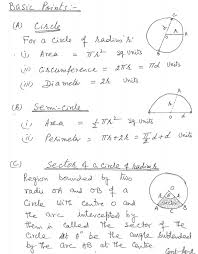 Basic Points:-
(A) Circle
For a Circle of radius 'r'
(i) Area = πr² sq. units
(ii) Circumference = 2πr = πd units
(iii) Diameter = 2r units
(B) Semi-circle
(i) Area = ½πr² sq. units
(ii) Perimeter = πr+2r = π/2 d+d units
(C) Sector of a circle of radius
Region bounded by two
radii OA and OB of a
Circle with centre O and
the arc intercepted by
them is called the sector of the
Circle. Let θ° be the angle subtended
by the arc AB at the centre
Cont-to-d